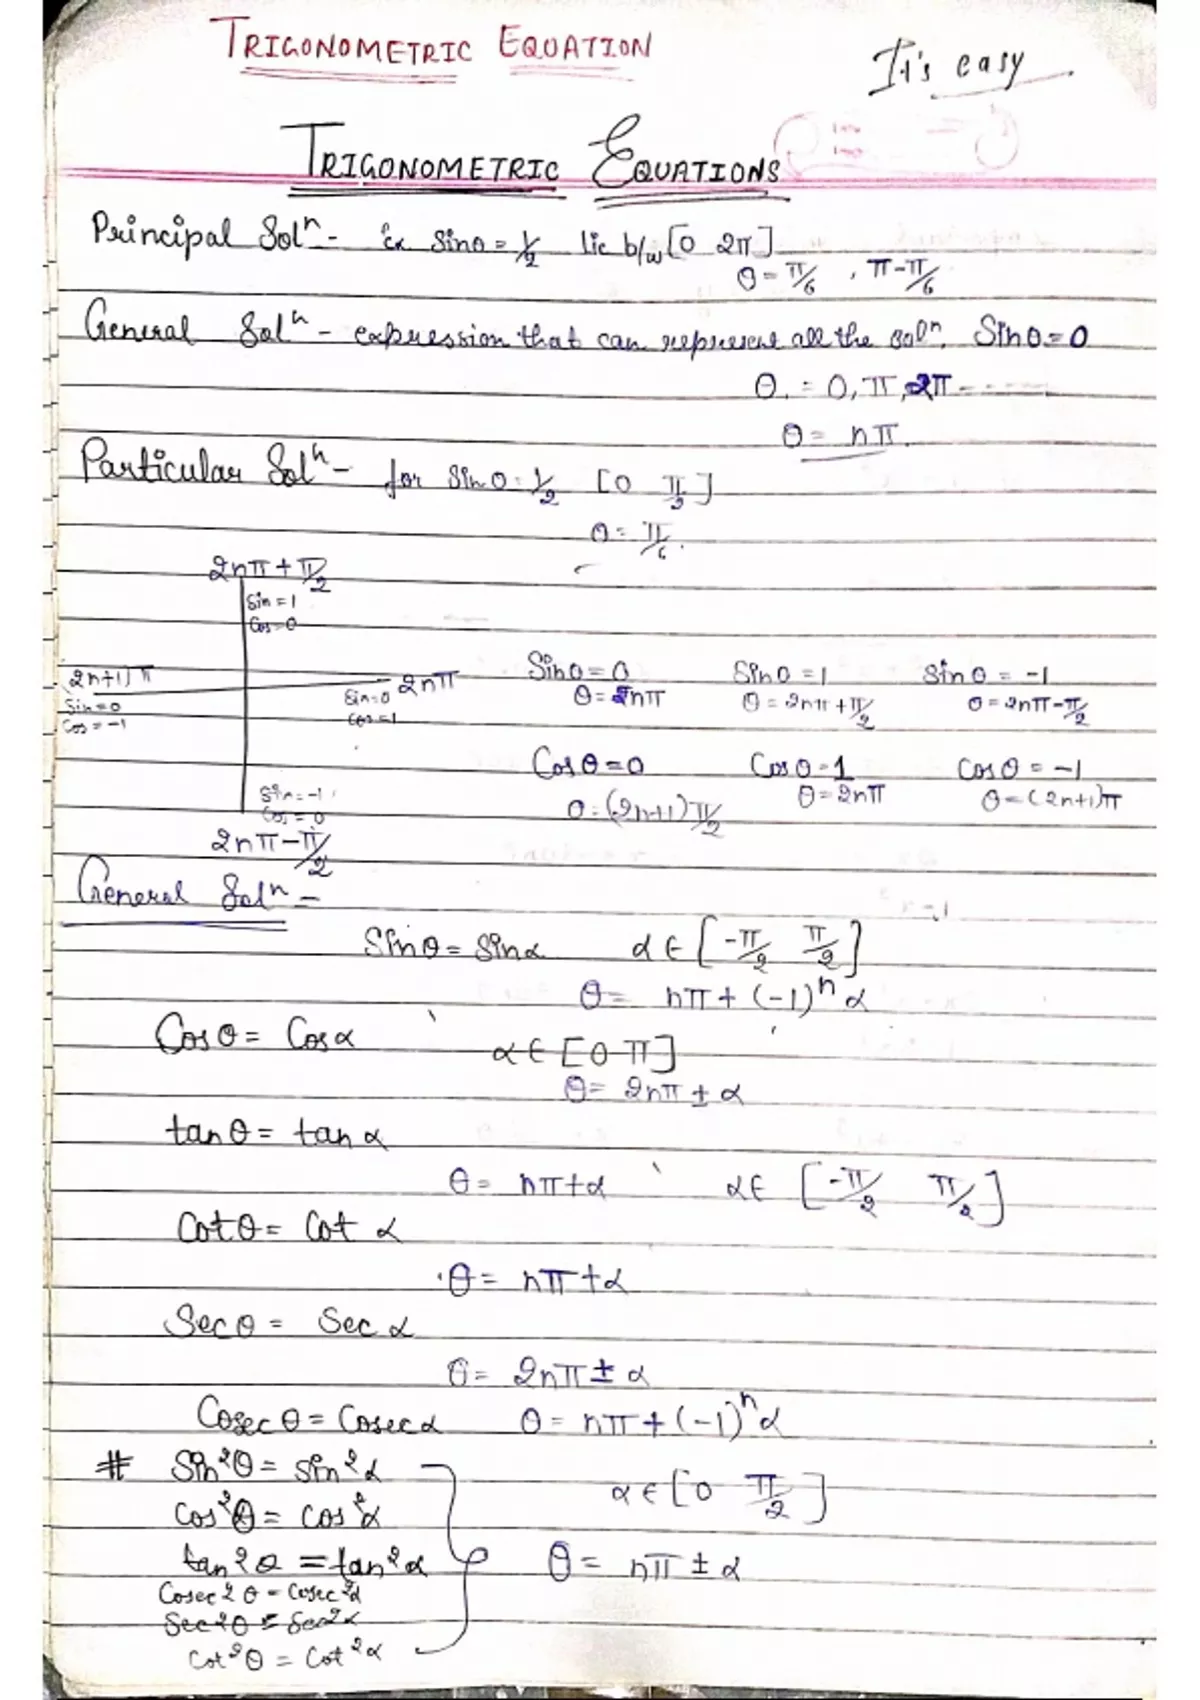 TRIGONOMETRIC EQUATION
It's easy
TRIGONOMETRIC EQUATIONS
Principal Solⁿ - ex sinθ = 1/2 lie b/w [0 2π]
θ = π/6 , π - π/6
General Solⁿ - expression that can represent all the solⁿ. Sinθ = 0
θ = 0, π, 2π - - - - -
θ = nπ.
Particular Solⁿ - for sinθ = 1/2 [0 π/2]
θ = π/6.
2nπ + π/2
Sin = 1
Cos = 0
2n+1)π
Sin = 0
Cos = -1
2nπ
Sin = 0
Cos = 1
Sin = -1
Cos = 0
2nπ - π/2
Sinθ = 0 Sinθ = 1 Sinθ = -1
θ = nπ θ = 2nπ + π/2 θ = 2nπ - π/2
Cosθ = 0 Cosθ = 1 Cosθ = -1
θ = (2n+1)π/2 θ = 2nπ θ = (2n+1)π
General Solⁿ -
Sinθ = Sinα α ∈ [-π/2 π/2]
θ = nπ + (-1)ⁿ α
Cosθ = Cosα α ∈ [0 π]
θ = 2nπ ± α
tanθ = tanα
θ = nπ + α α ∈ [-π/2 π/2]
Cotθ = Cot α
θ = nπ + α
Secθ = Sec α
θ = 2nπ ± α
Cosecθ = Cosecα θ = nπ + (-1)ⁿ α
# Sin²θ = sin²α α ∈ [0 π/2]
Cos²θ = cos²α
tan²θ = tan²α θ = nπ ± α
Cosec²θ = Cosec²α
Sec²θ = Sec²α
Cot²θ = Cot²α